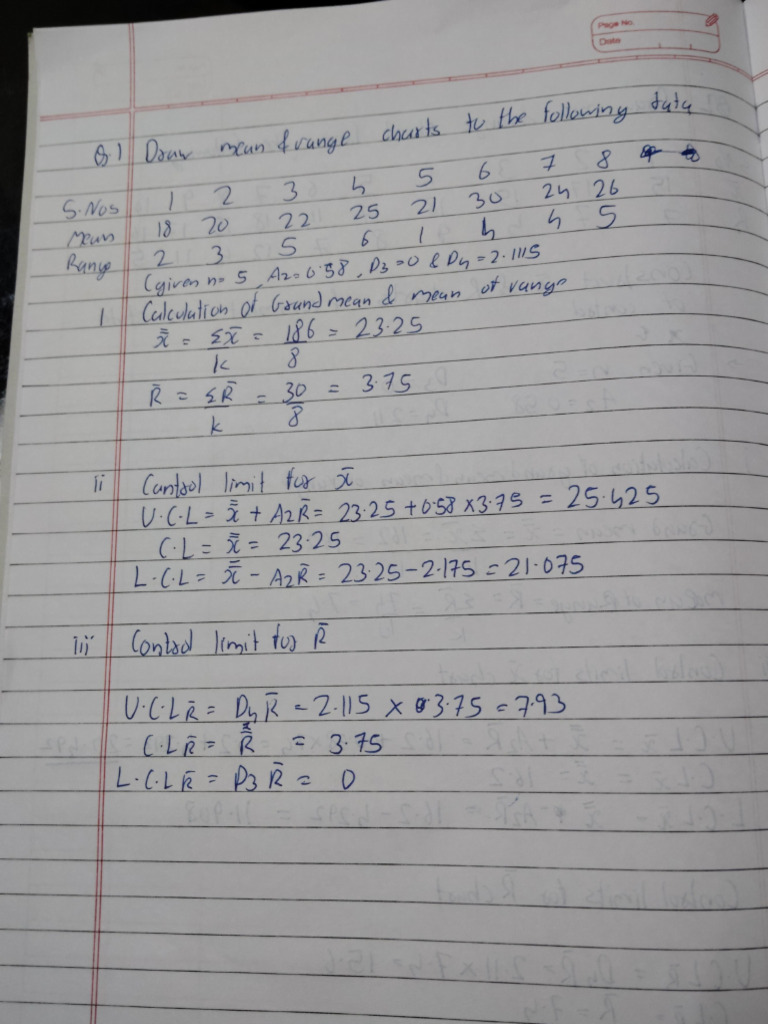 Page No.
Date
Q.1 Draw mean & range charts to the following data
S.Nos 1 2 3 4 5 6 7 8
Mean 18 20 22 25 21 30 24 26
Range 2 3 5 6 1 4 4 5
(given n= 5, A2=0.58, D3=0 & D4=2.1115
i Calculation of Grand mean & mean of range
x̿ = Σx̄/k = 186/8 = 23.25
R̄ = ΣR̄/k = 30/8 = 3.75
ii Control limit for x̄
U.C.L = x̿ + A2R̄ = 23.25 + 0.58 × 3.75 = 25.425
C.L = x̿ = 23.25
L.C.L = x̿ - A2R̄ = 23.25 - 2.175 = 21.075
iii Control limit for R̄
U.C.L R̄ = D4 R̄ = 2.115 × 3.75 = 7.93
C.L R̄ = R̿ = 3.75
L.C.L R̄ = D3 R̄ = 0